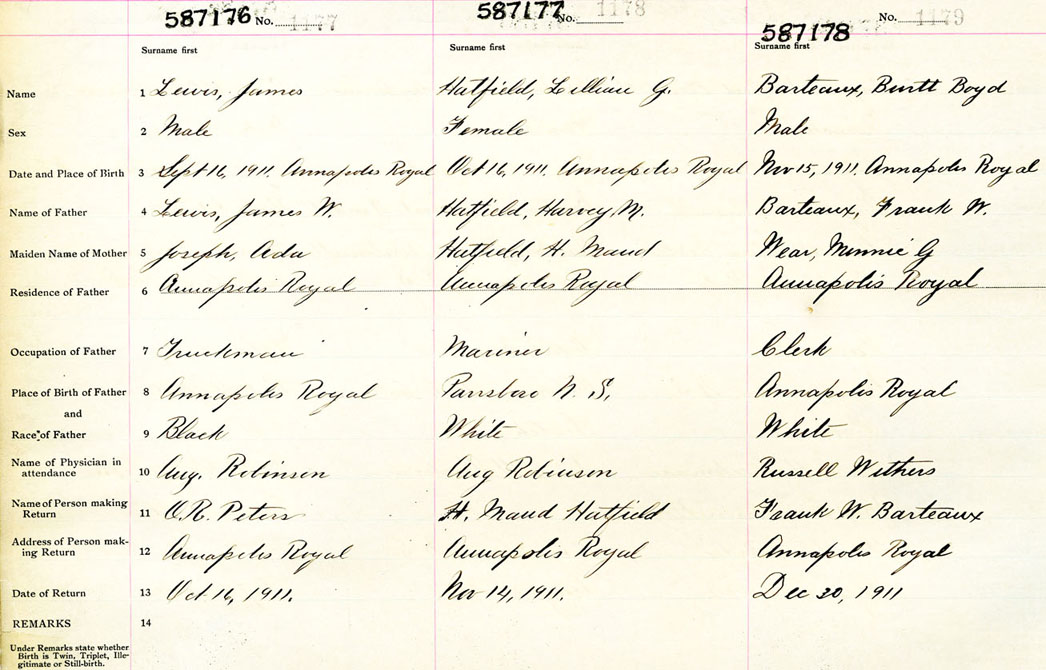 587176 No. 1177 587177 No. 1178 587178 No. 1179
Surname first Surname first Surname first
Name 1 Lewis, James Hatfield, Lillian G. Barteaux, Burtt Boyd
Sex 2 Male Female Male
Date and Place of Birth 3 Sept 16, 1911. Annapolis Royal Oct 16, 1911. Annapolis Royal Nov 15, 1911. Annapolis Royal
Name of Father 4 Lewis, James W. Hatfield, Harvey M. Barteaux, Frank W.
Maiden Name of Mother 5 Joseph, Ada Hatfield, H. Maud Wear, Minnie G
Residence of Father 6 Annapolis Royal Annapolis Royal Annapolis Royal
Occupation of Father 7 Truckman Mariner Clerk
Place of Birth of Father 8 Annapolis Royal Parrsboro N. S. Annapolis Royal
and
Race of Father 9 Black White White
Name of Physician in
attendance 10 Aug. Robinson Aug Robinson Russell Withers
Name of Person making
Return 11 O.R. Peters H. Maud Hatfield Frank W. Barteaux
Address of Person mak-
ing Return 12 Annapolis Royal Annapolis Royal Annapolis Royal
Date of Return 13 Oct 16, 1911. Nov 14, 1911. Dec 30, 1911
REMARKS 14
Under Remarks state whether
Birth is Twin, Triplet, Ille-
gitimate or Still-birth.